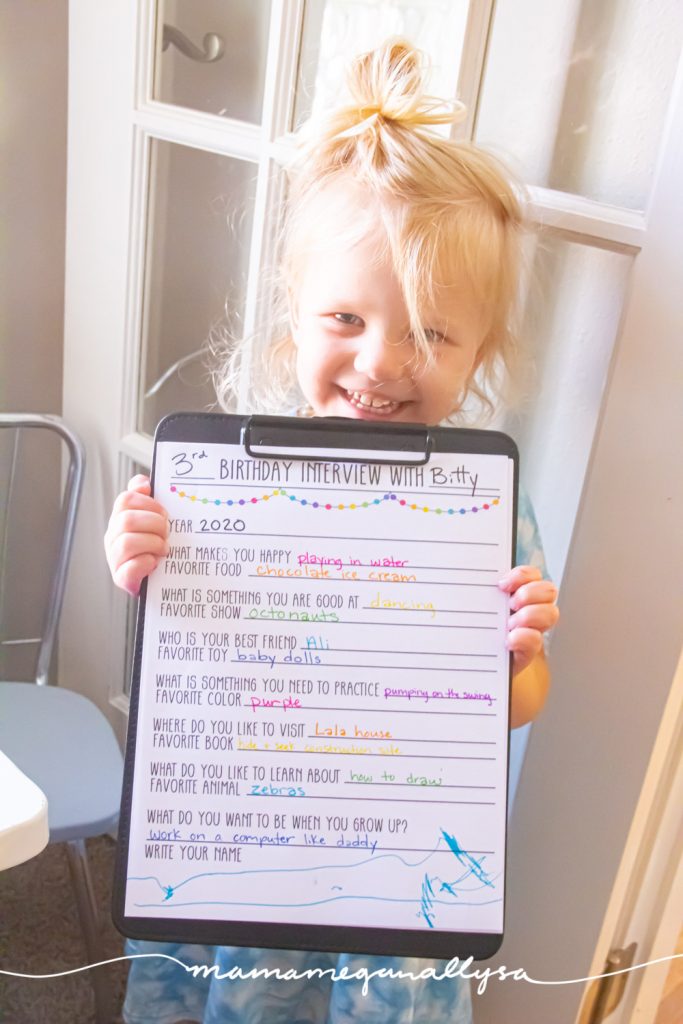 3rd BIRTHDAY INTERVIEW WITH Bitty
YEAR 2020
WHAT MAKES YOU HAPPY playing in water
FAVORITE FOOD chocolate ice cream
WHAT IS SOMETHING YOU ARE GOOD AT dancing
FAVORITE SHOW octonauts
WHO IS YOUR BEST FRIEND Ali
FAVORITE TOY baby dolls
WHAT IS SOMETHING YOU NEED TO PRACTICE pumping on the swing
FAVORITE COLOR purple
WHERE DO YOU LIKE TO VISIT Lala house
FAVORITE BOOK hide + seek construction site
WHAT DO YOU LIKE TO LEARN ABOUT how to draw
FAVORITE ANIMAL zebras
WHAT DO YOU WANT TO BE WHEN YOU GROW UP?
work on a computer like daddy
WRITE YOUR NAME
mamamegunallysa